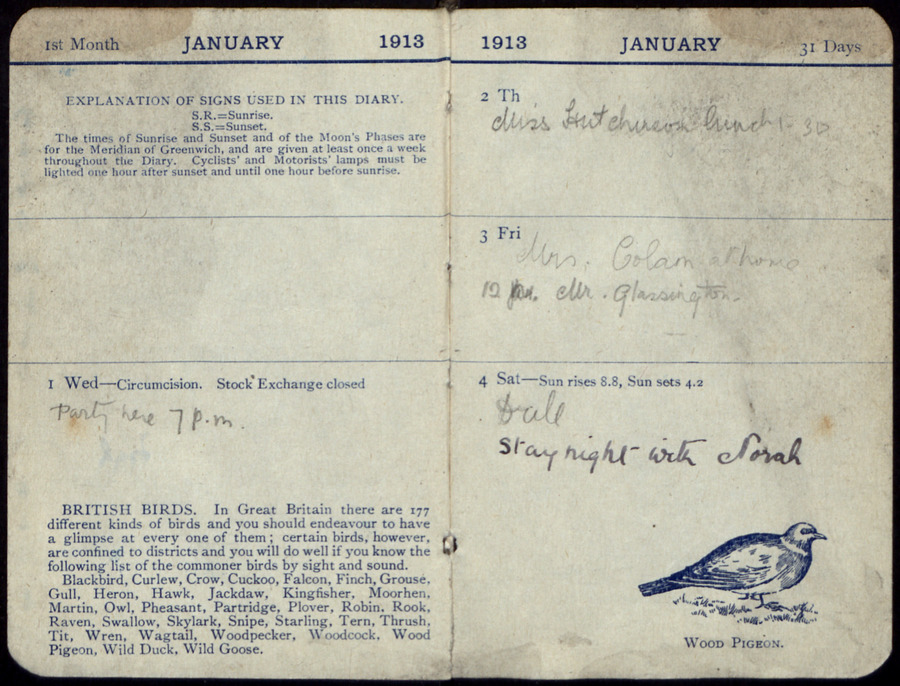 1st Month JANUARY 1913
EXPLANATION OF SIGNS USED IN THIS DIARY.
S.R.=Sunrise.
S.S.=Sunset.
The times of Sunrise and Sunset and of the Moon's Phases are
for the Meridian of Greenwich, and are given at least once a week
throughout the Diary. Cyclists' and Motorists' lamps must be
lighted one hour after sunset and until one hour before sunrise.
1 Wed—Circumcision. Stock Exchange closed
Party here 7 p.m.
BRITISH BIRDS. In Great Britain there are 177
different kinds of birds and you should endeavour to have
a glimpse at every one of them; certain birds, however,
are confined to districts and you will do well if you know the
following list of the commoner birds by sight and sound.
Blackbird, Curlew, Crow, Cuckoo, Falcon, Finch, Grouse,
Gull, Heron, Hawk, Jackdaw, Kingfisher, Moorhen,
Martin, Owl, Pheasant, Partridge, Plover, Robin, Rook,
Raven, Swallow, Skylark, Snipe, Starling, Tern, Thrush,
Tit, Wren, Wagtail, Woodpecker, Woodcock, Wood
Pigeon, Wild Duck, Wild Goose.
1913 JANUARY 31 Days
2 Th
Miss Hutchinson lunch 1-30
3 Fri
Mrs. at home
12 Mr. Glassington.
4 Sat—Sun rises 8.8, Sun sets 4.2
Stay night with Norah
WOOD PIGEON.